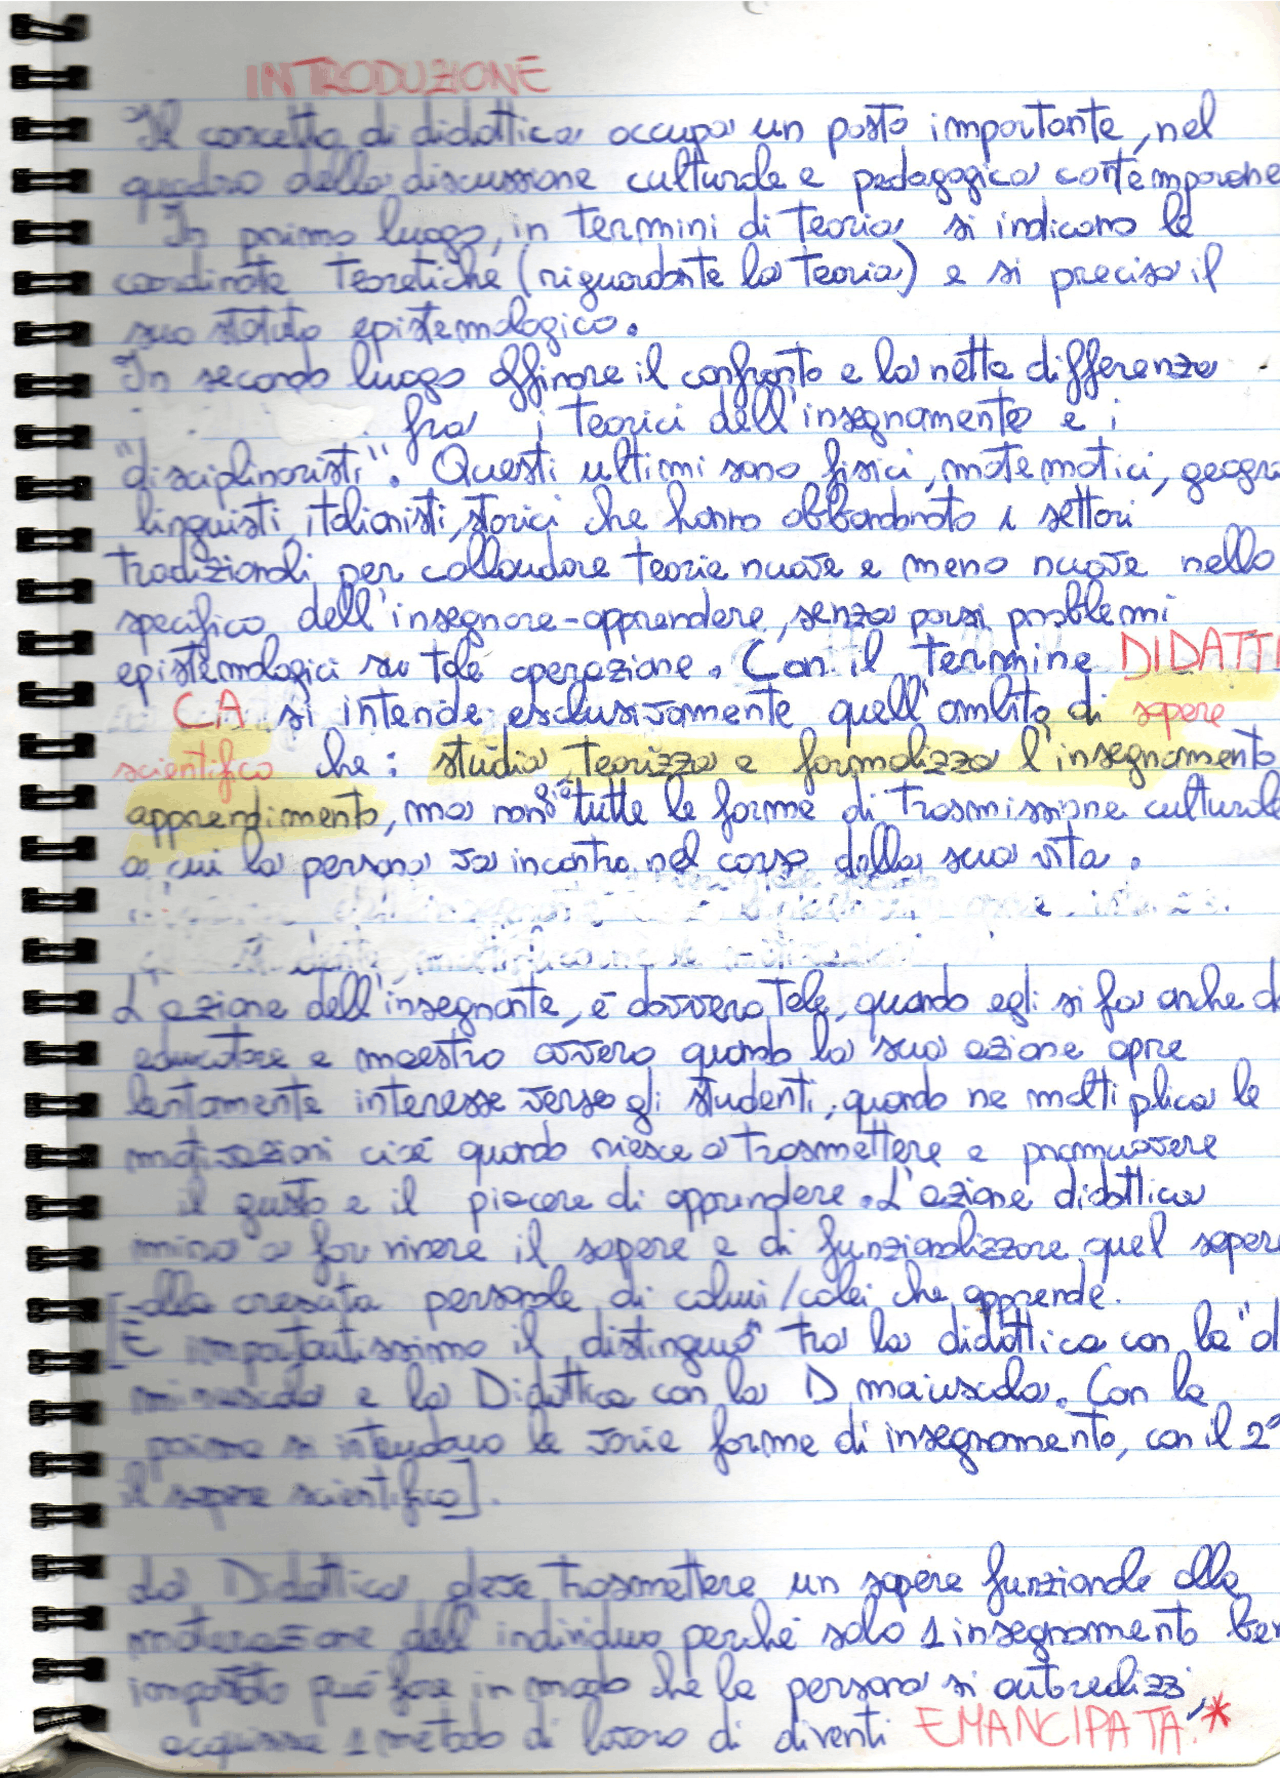 INTRODUZIONE
Il concetto di didattica occupa un posto importante, nel
quadro della discussione culturale e pedagogica contemporane
In primo luogo, in termini di teoria si indicano le
coordinate teoretiche (riguardante la teoria) e si precisa il
suo statuto epistemologico.
In secondo luogo affinare il confronto e la netta differenza
fra i teorici dell'insegnamento e i
"disciplinaristi". Questi ultimi sono fisici, matematici, geogra
linguisti, italianisti, storici che hanno abbandonato i settori
tradizionali per collaudare teorie nuove e meno nuove nello
specifico dell'insegnare-apprendere, senza porsi problemi
epistemologici su tale operazione. Con il termine DIDATTI
CA si intende esclusivamente quell'ambito di sapere
scientifico che: studia, teorizza e formalizza l'insegnamento
apprendimento, ma non già tutte le forme di trasmissione culturale
a cui la persona va incontro nel corso della sua vita.
L'azione dell'insegnante, è davvero tale, quando egli si fa anche d
educatore e maestro ovvero quando la sua azione apre
lentamente interesse verso gli studenti, quando ne moltiplica le
motivazioni cioè quando riesce a trasmettere e promuovere
il gusto e il piacere di apprendere. L'azione didattica
mira a far vivere il sapere e di funzionalizzare quel sapere
alla crescita personale di colui/colei che apprende.
[È importantissimo il "distinguo" tra la didattica con la "d
minuscola e la Didattica con la D maiuscola. Con la
prima si intendano le varie forme di insegnamento, con il 2°
il sapere scientifico].
La Didattica deve trasmettere un sapere funzionale alla
maturazione dell'individuo perché solo 1 insegnamento ben
impostato può fare in modo che la persona si autorealizzi,
acquisisca 1 metodo di lavoro di diventi EMANCIPATA.*